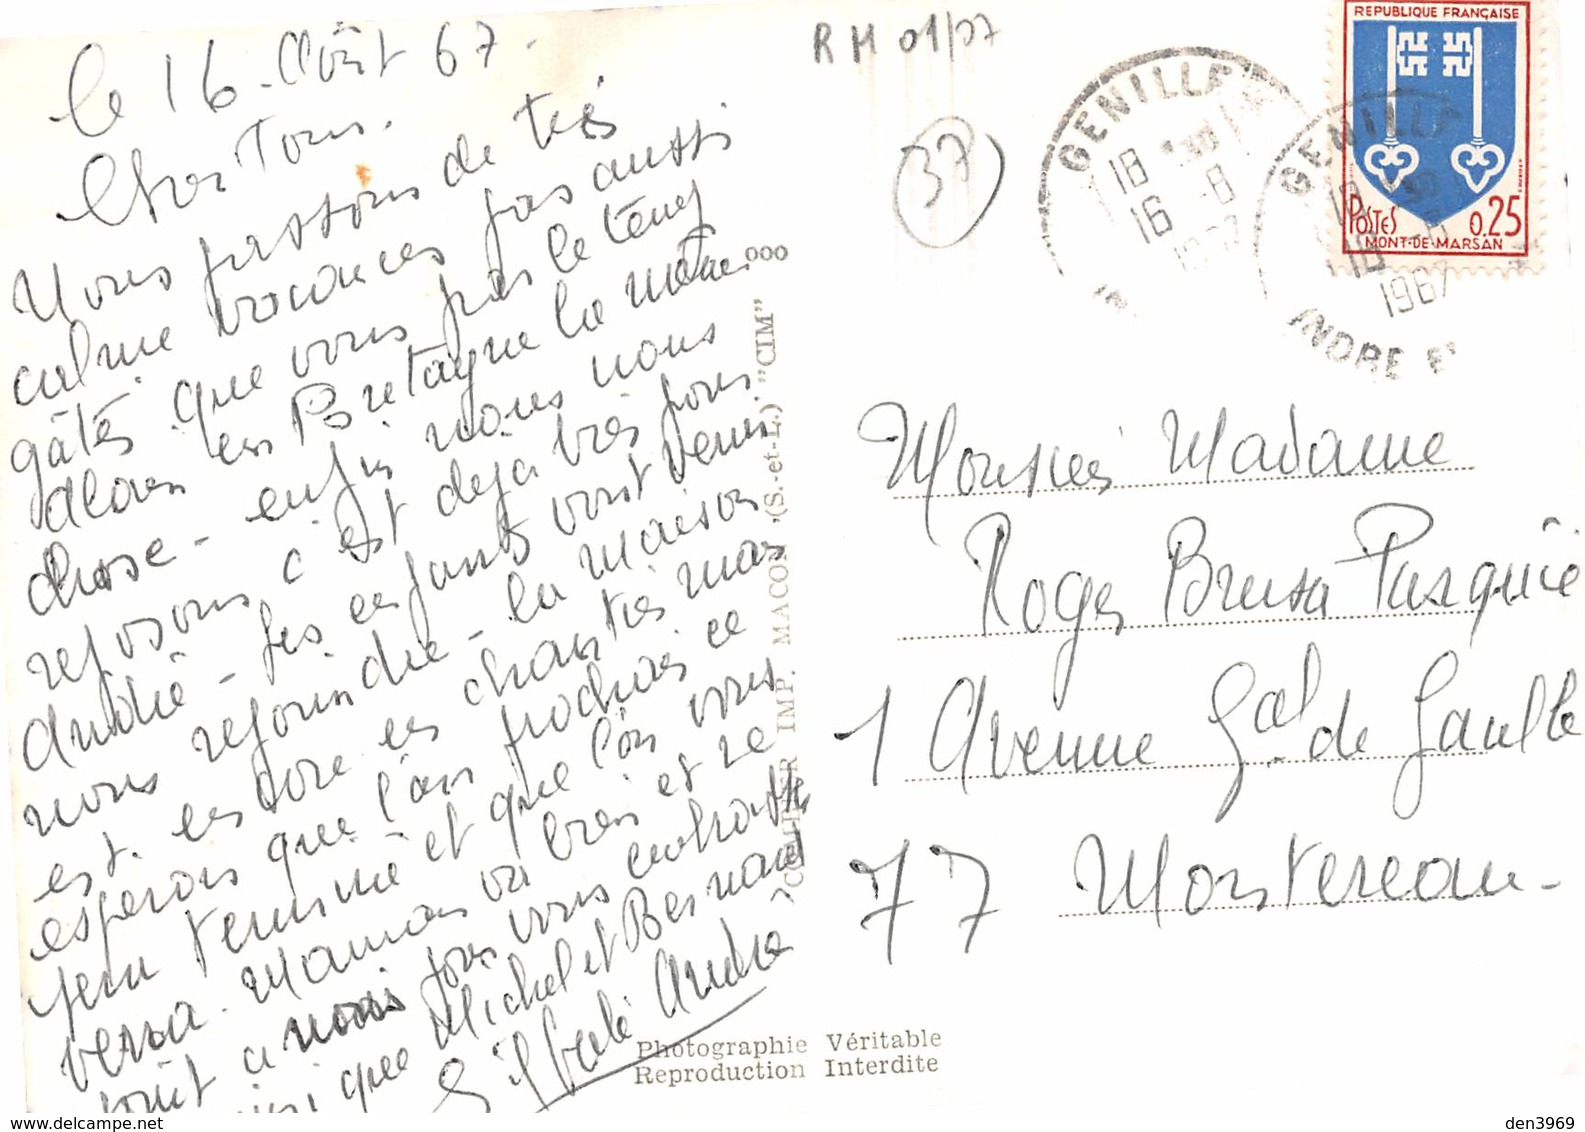 le 16 - Août 67 -
Cher Tous.
Nous passons de très
calme vacances pas aussi
gâtés que vous par le temps
alors en Bretagne la même
chose - enfin nous nous
reposons c'est déjà bien pour
André - les enfants vont venir
nous rejoindre - la maison
est encore en chantier mais
esperons que l'an prochain ce
sera terminé et que l'on vous
verra. Maman va bien et se
joint a nous pour vous embrasser
ainsi que Michel et Bernard
André
RM 01/07
37
GENILLE
18
16 -8
GENILLE
18
1967
INDRE ET
REPUBLIQUE FRANÇAISE
POSTES 0,25
MONT-DE-MARSAN
COMBIER IMP. MACON (S.-et-L.) "CIM"
Monsieur Madame
Roger Pasquié
1 Avenue Gal. de Gaulle
77 Montereau -
Photographie Véritable
Reproduction Interdite
delcampe.net
den3969